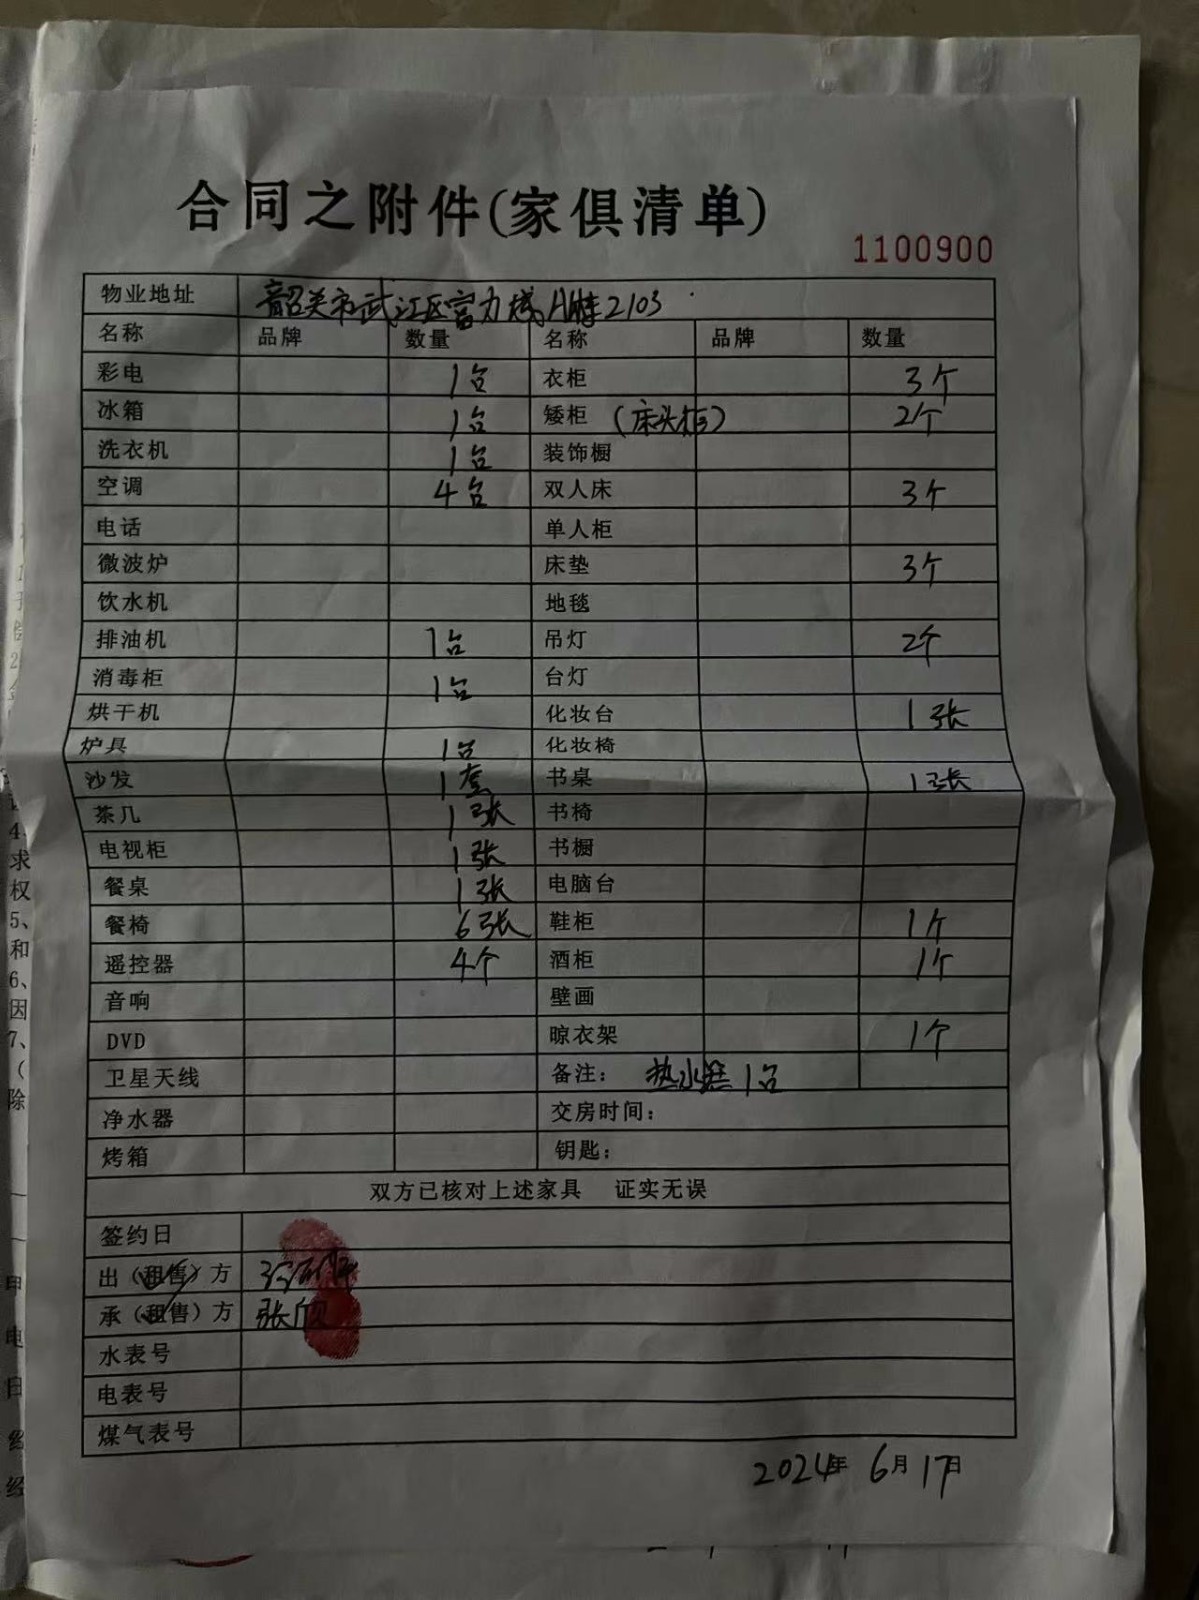 合同之附件(家俱清单)
1100900
物业地址 韶关市武江区富力城A1栋2103
名称 品牌 数量 名称 品牌 数量
彩电 1台 衣柜 3个
冰箱 1台 矮柜 (床头柜) 2个
洗衣机 1台 装饰橱
空调 4台 双人床 3个
电话 单人柜
微波炉 床垫 3个
饮水机 地毯
排油机 1台 吊灯 2个
消毒柜 1台 台灯
烘干机 化妆台 1张
炉具 1台 化妆椅
沙发 1套 书桌 1张
茶几 1张 书椅
电视柜 1张 书橱
餐桌 1张 电脑台
餐椅 6张 鞋柜 1个
遥控器 4个 酒柜 1个
音响 壁画
DVD 晾衣架 1个
卫星天线 备注: 热水器1台
净水器 交房时间:
烤箱 钥匙:
双方已核对上述家具 证实无误
签约日
出(租售)方
承(租售)方 张欣
水表号
电表号
煤气表号
2024年 6月 17日
4、
求
权
5、
和
6、
因
7、
(
除
甲
电
日
经